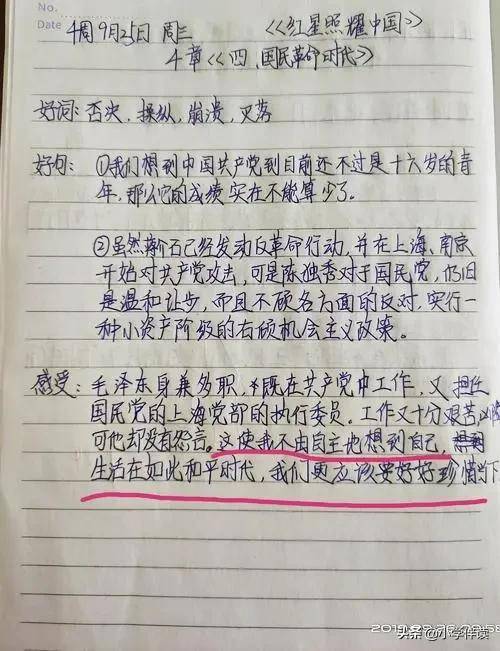 No.
Date
4周 9月25日 周三 《红星照耀中国》
4章《四、国民革命时代》
好词: 否决, 操纵, 崩溃, 灭落
好句: ①我们想到中国共产党到目前还不过是十六岁的青
年, 那么它的成绩实在不能算少了。
②虽然蒋介石已经发动反革命行动, 并在上海、南京
开始对共产党攻击, 可是陈独秀对于国民党, 仍旧
是温和让步, 而且不顾各方面的反对, 实行一
种小资产阶级的右倾机会主义政策。
感受: 毛泽东身兼多职, 既在共产党中工作, 又担任
国民党的上海党部的执行委员. 工作又十分艰苦
可他却没有怨言。这使我不由自主地想到自己,
生活在如此和平时代, 我们更应该要好好珍惜当下
头条 @小学伴读